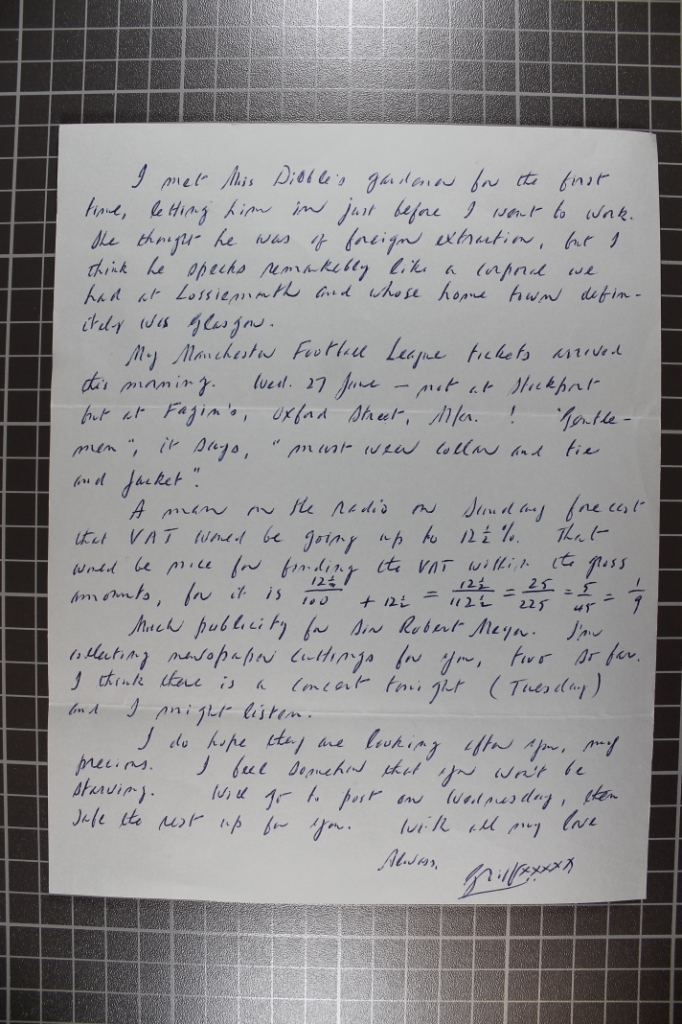 I met Miss Dibble's gardener for the first
time, letting him in just before I went to work.
She thought he was of foreign extraction, but I
think he speaks remarkably like a corporal we
had at Lossiemouth and whose home town defin-
itely was Glasgow.
My Manchester Football League tickets arrived
this morning. Wed. 27 June - not at Stockport
but at Fagin's, Oxford Street, M/cr. ! "Gentle-
men", it says, "must wear collar and tie
and jacket".
A man on the radio on Sunday forecast
that VAT would be going up to 12½%. That
would be nice for finding the VAT within the gross
amounts, for it is 12½/100 + 12½ = 12½/112½ = 25/225 = 5/45 = 1/9
Much publicity for Sir Robert Mayer. I'm
collecting newspaper cuttings for you, two so far.
I think there is a concert tonight (Tuesday)
and I might listen.
I do hope they are looking after you, my
precious. I feel somehow that you won't be
starving. Will go to post on Wednesday, then
safe the rest up for you. With all my love
Always,
xxxxxx